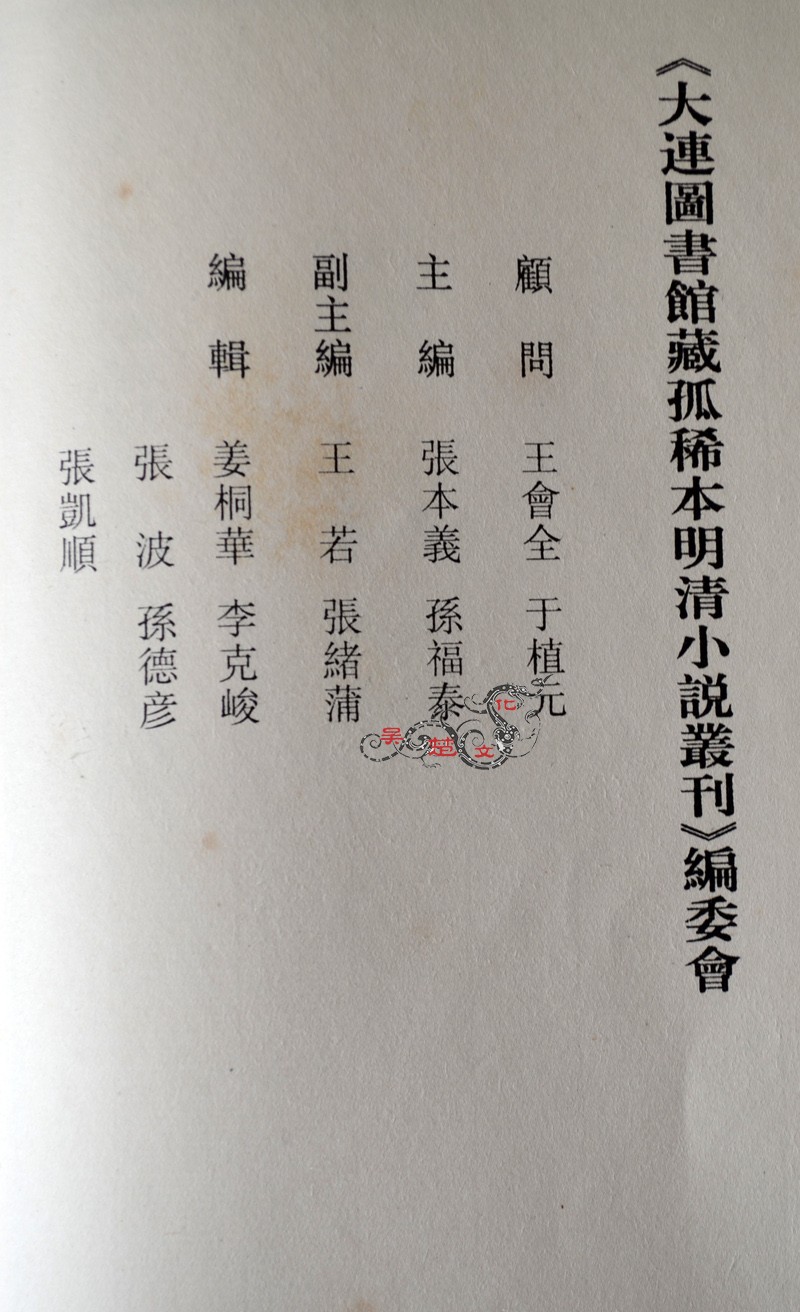 《大連圖書館藏孤稀本明清小説叢刊》編委會
顧問 王會全 于植元
主編 張本義 孫福泰
副主編 王若 張緒蒲
編輯 姜桐華 李克峻
張波 孫德彦
張凱順
吴楚文化